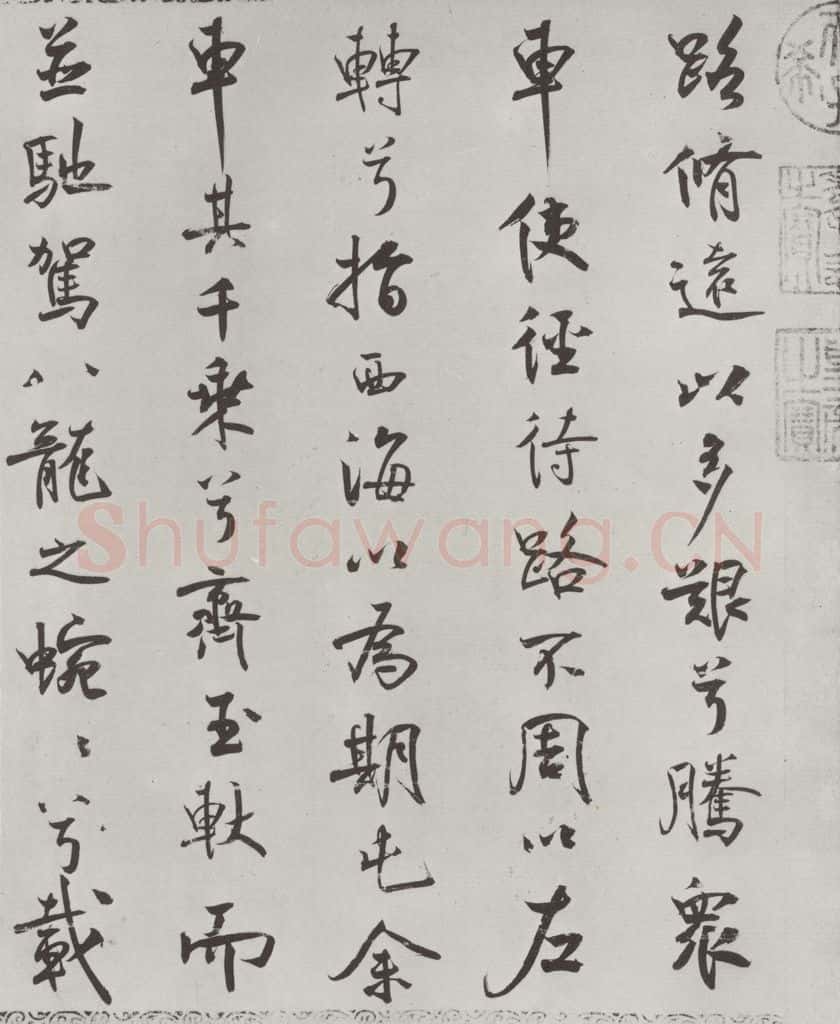 路脩遠以多艱兮騰衆
車使徑待路不周以左
轉兮指西海以為期屯余
車其千乘兮齊玉軑而
並馳駕八龍之蜿〻兮載
Shufawang.CN
之寶